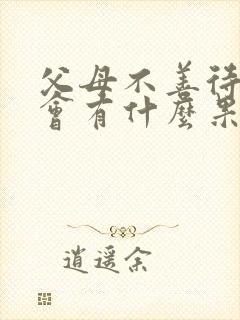 父母不善待
會有什麼果
逍遥余